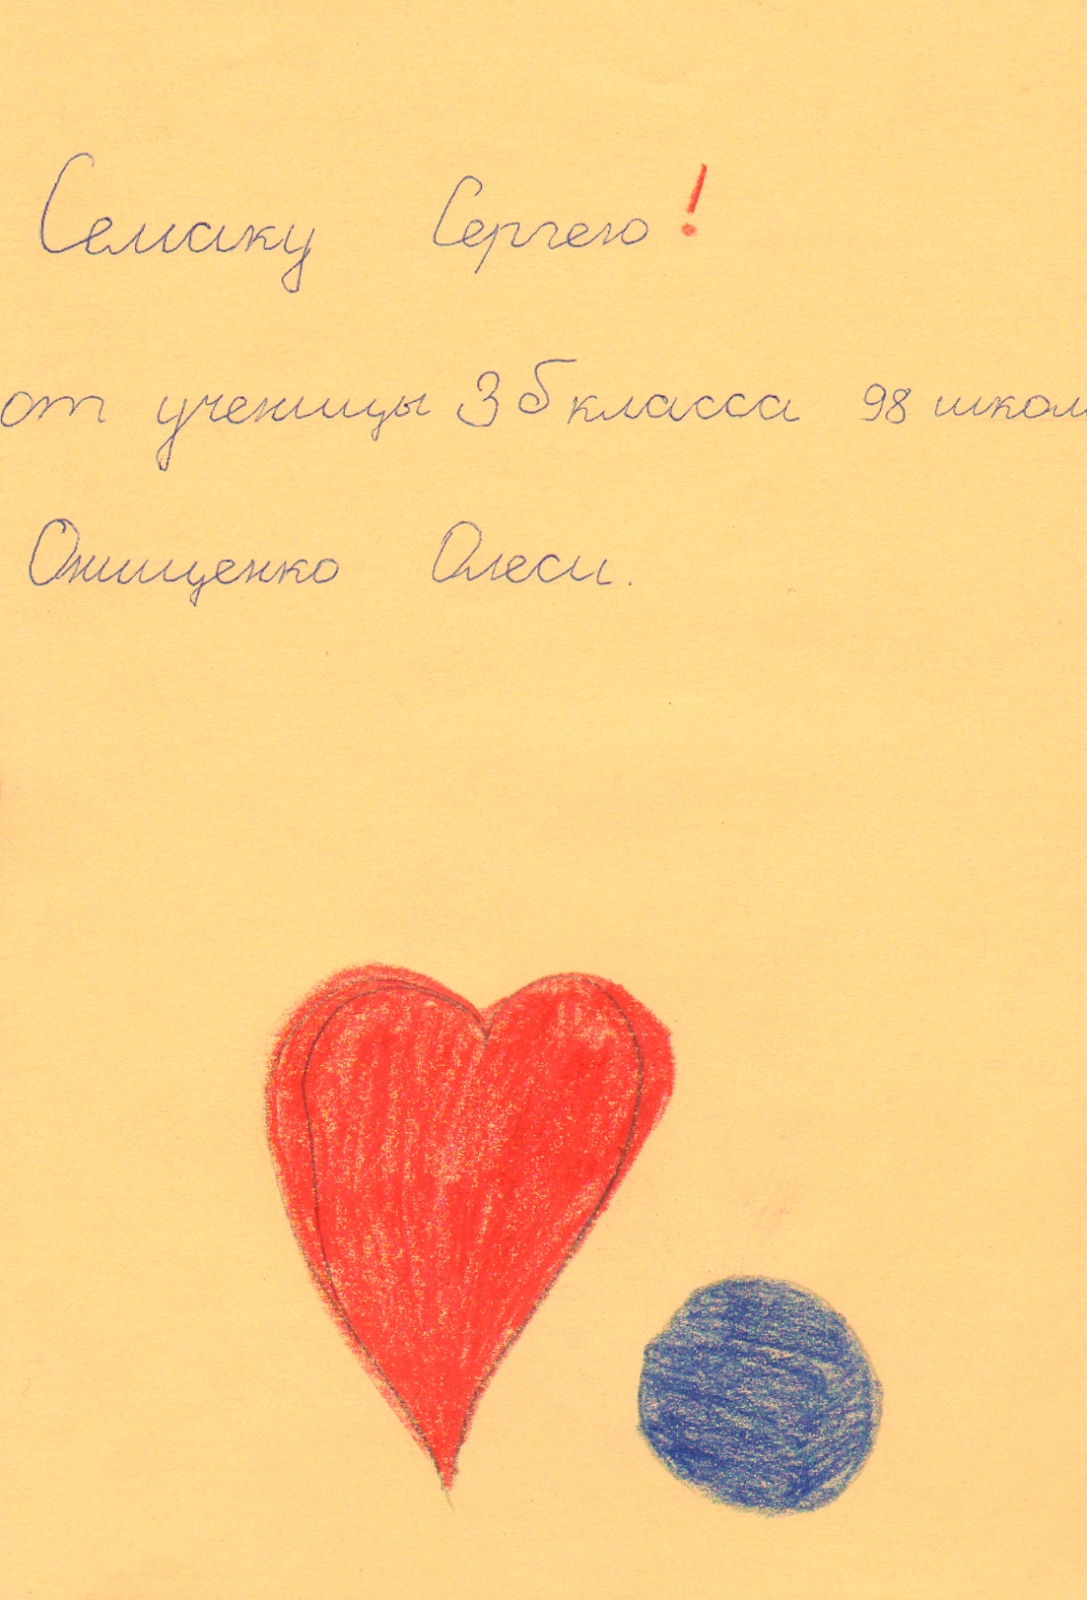 Семаку Сергею!
от ученицы 3 б класса 98 школ
Онищенко Олеси.